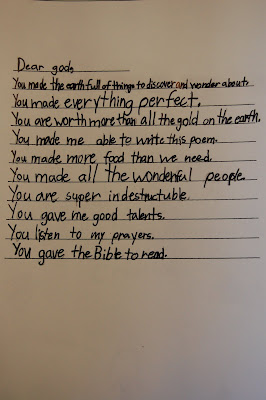 Dear god,
You made the earth full of things to discover and wonder about.
You made everything perfect.
You are worth more than all the gold on the earth.
You made me able to write this poem.
You made more food than we need.
You made all the wonderful people.
You are super indestructuble.
You gave me good talents.
You listen to my prayers.
You gave the Bible to read.